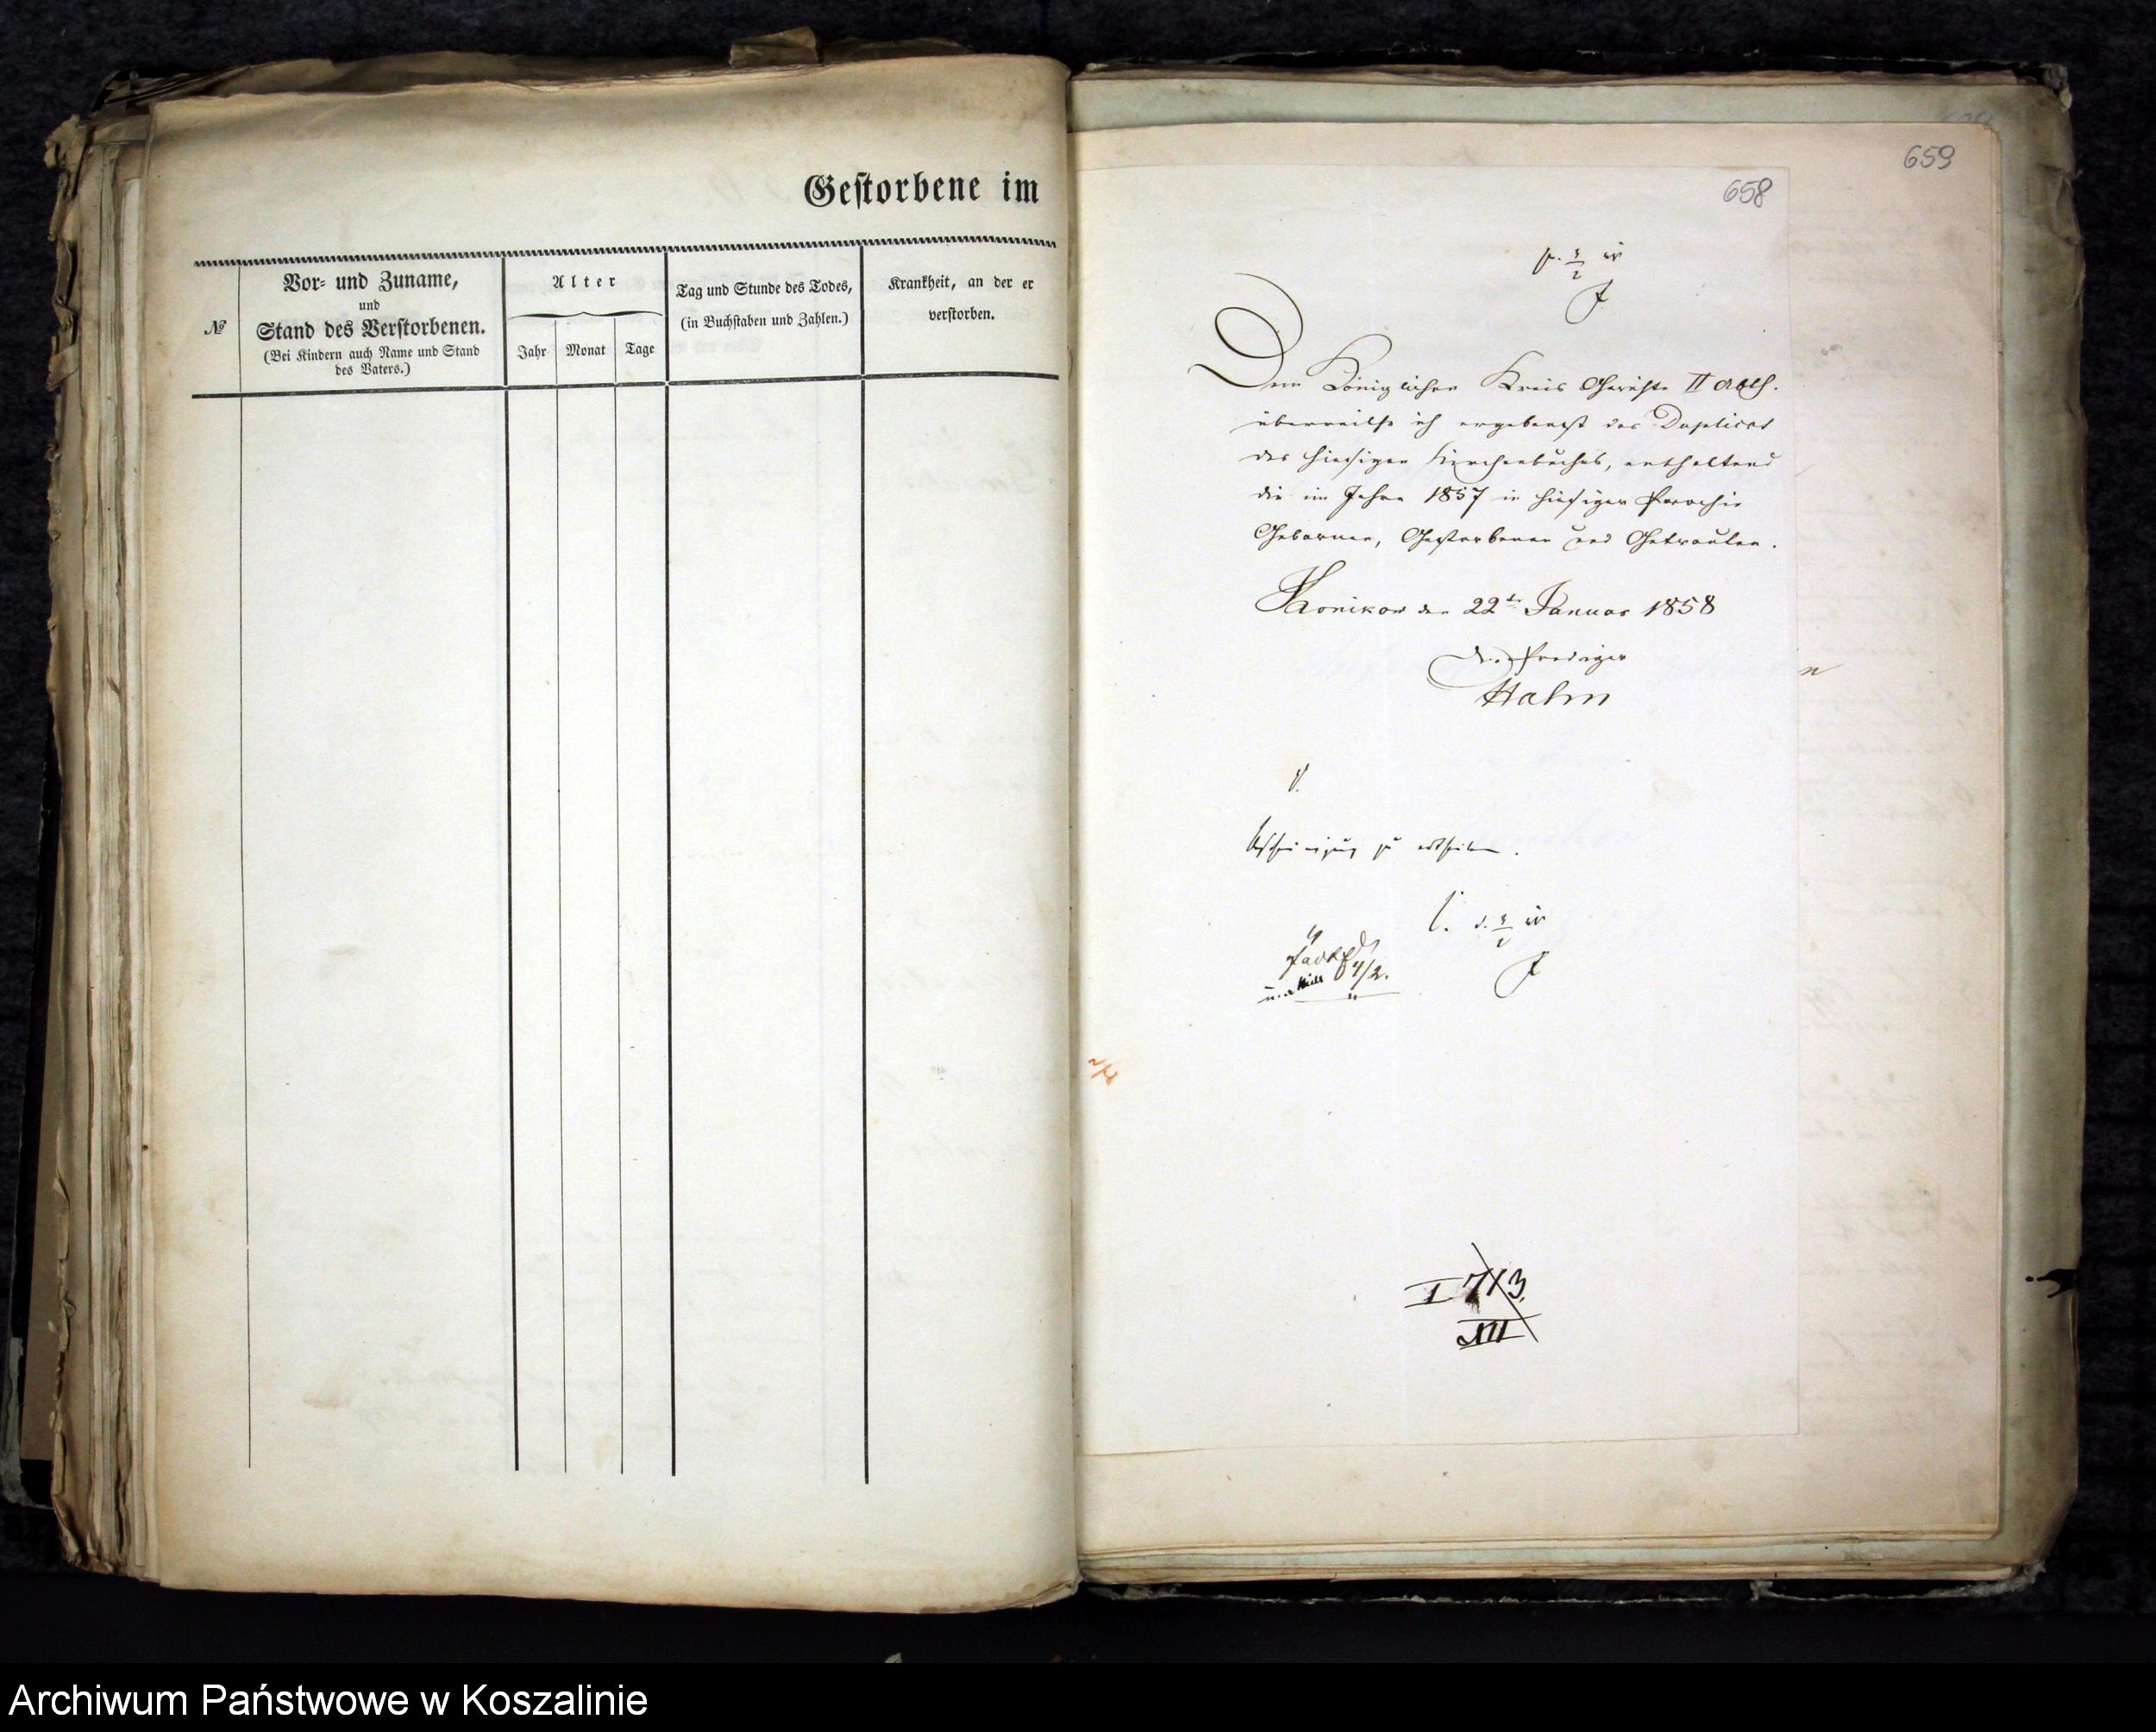 Gestorbene im
№
Vor- und Zuname,
und
Stand des Verstorbenen.
(Bei Kindern auch Name und Stand
des Vaters.)
Alter
Jahr
Monat
Tage
Tag und Stunde des Todes,
(in Buchstaben und Zahlen.)
Krankheit, an der er
verstorben.
659
658
Dem Königlichen Kreis Gerichte II Abth.
überreiche ich ergebenst das Duplicat
des hiesigen Kirchenbuches, enthaltend
die im Jahre 1857 in hiesiger Parochie
Gebornen, Gestorbenen und Getrauten.
Konikow den 22t Januar 1858
Der Prediger
Hahn
V.
Bescheinigung zu ertheilen.
4/2.
I 713.
XII
Archiwum Państwowe w Koszalinie